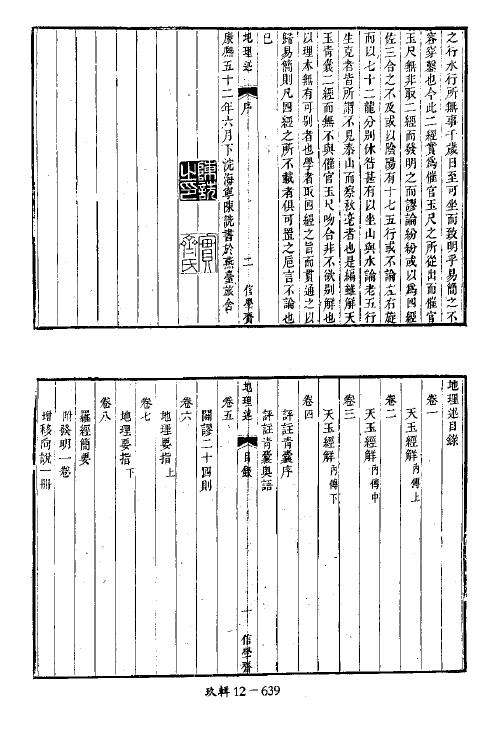 之行水行所無事千歲日至可坐而致明乎易簡之不
容穿鑿也今此二經實為催官玉尺之所從出而催官
玉尺無非取二經而發明之而謬論紛紛或以為四經
佐三合之不及或以陰陽有十七五行或不論左右旋
而以七十二龍分別休咎甚有以坐山與水論老五行
生克者皆所謂不見泰山而察秋毫者也是編雖解天
玉青囊二經而無不與催官玉尺吻合非不欲別解也
以理本無有可別者也學者取四經之旨而貫通之以
歸易簡則凡四經之所不載者俱可置之卮言不論也
已
地理述 序 二 信學齋
康熙五十二年六月下浣海寧陳詵書於燕臺旅舍
陳詵之印
實齋氏
地理述目錄
卷一
天玉經解內傳上
卷二
天玉經解內傳中
卷三
天玉經解內傳下
卷四
評註青囊序
評註青囊奧語
地理述 目錄 一 信學齋
卷五
闢謬二十四則
卷六
地理要指上
卷七
地理要指下
卷八
羅經簡要
附發明一卷
增移向說一冊
玖輯12-639